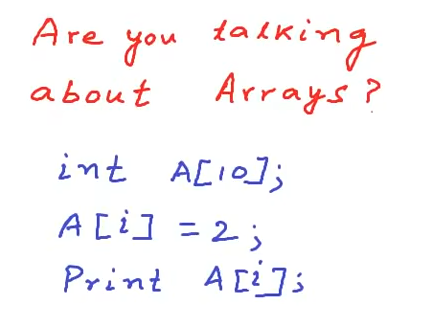 Are you talking
about Arrays?
int A[10];
A[i] = 2;
Print A[i];